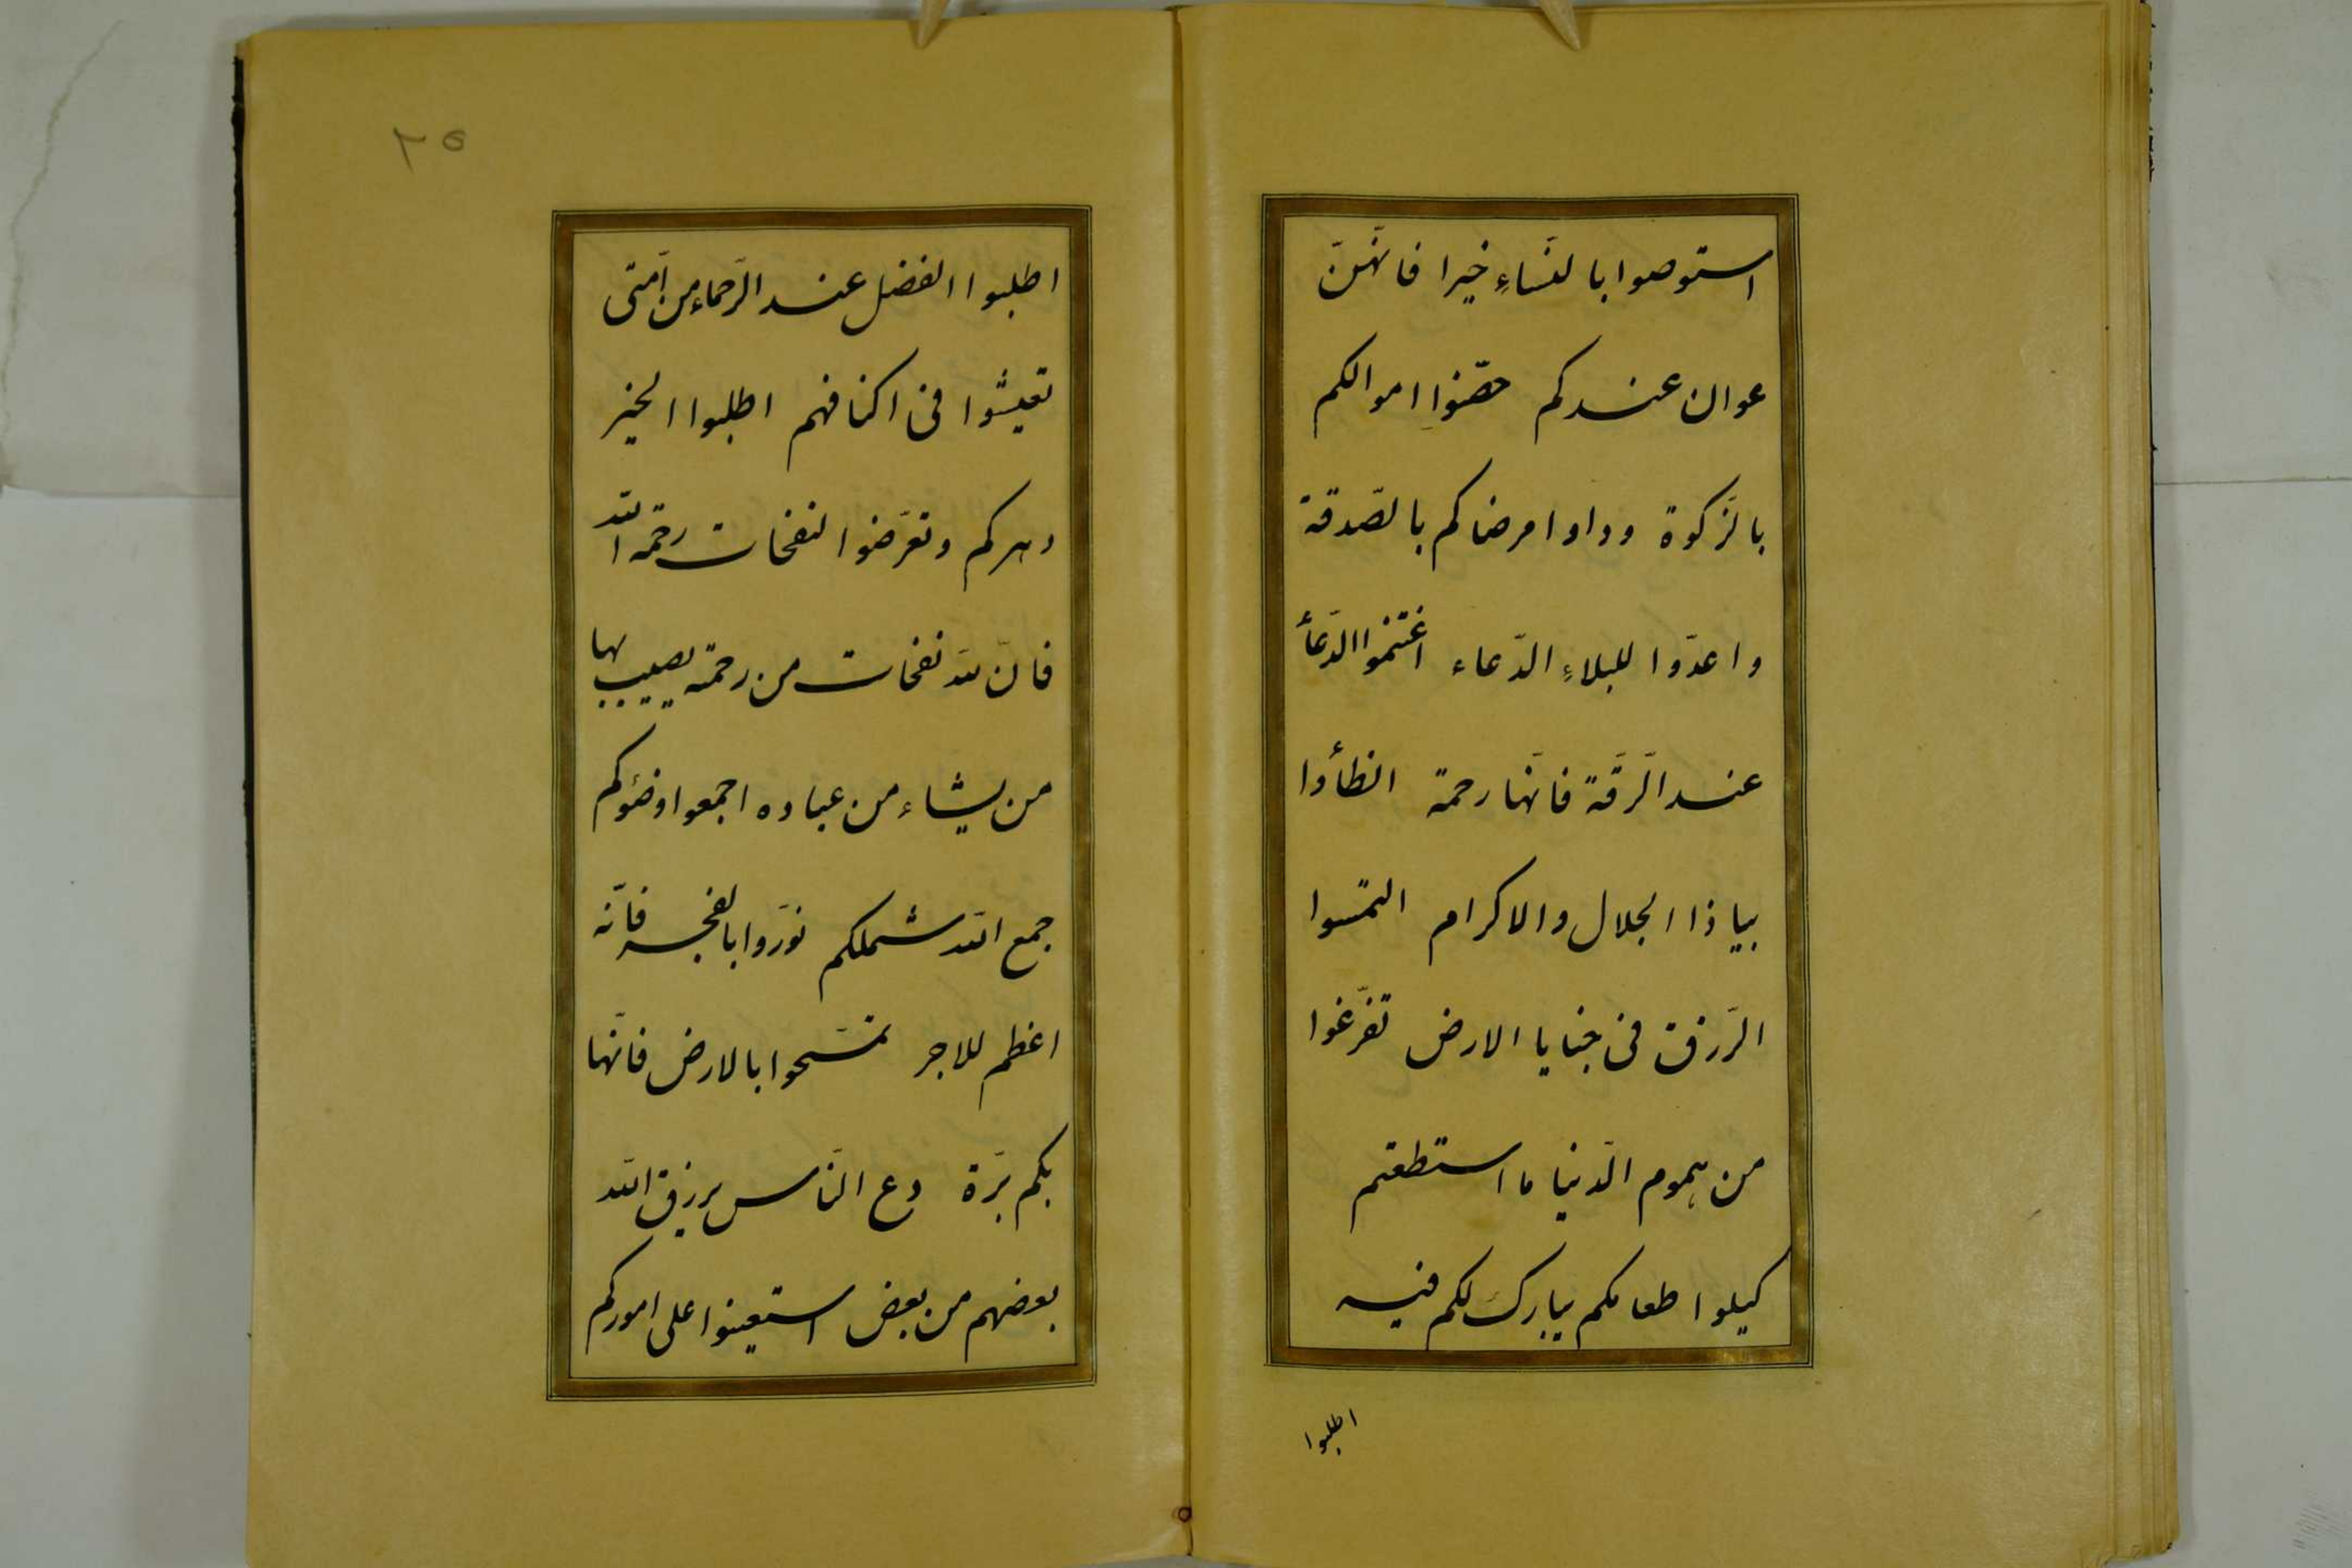 استوصوا بالنّساءِ خيرا فانّهنّ
عوان عندكم حصّنوا اموالكم
بالزّكوة وداوا مرضاكم بالصّدقة
واعدّوا للبلاءِ الدّعاء اغتنموا الدّعأ
عند الرّقّة فانّها رحمة الظأوا
بيا ذا الجلال والاكرام التمسوا
الرّزق فى خبايا الارض تفرّغوا
من هموم الدّنيا ما استطعتم
كيلوا طعامكم يبارك لكم فيه
اطلبوا
٢٥
اطلبوا الفضل عند الرّحماء من امّتى
تعيشوا فى اكنافهم اطلبوا الخير
دهركم وتعرّضوا لنفحات رحمة الله
فانّ لله نفحات من رحمته يصيب بها
من يشاء من عباده اجمعوا وضؤكم
جمع الله شملكم نوّروا بالفجر فانّه
اعظم للاجر تمسّحوا بالارض فانّها
بكم برّة دع النّاس يرزق الله
بعضهم من بعض استعينوا على اموركم